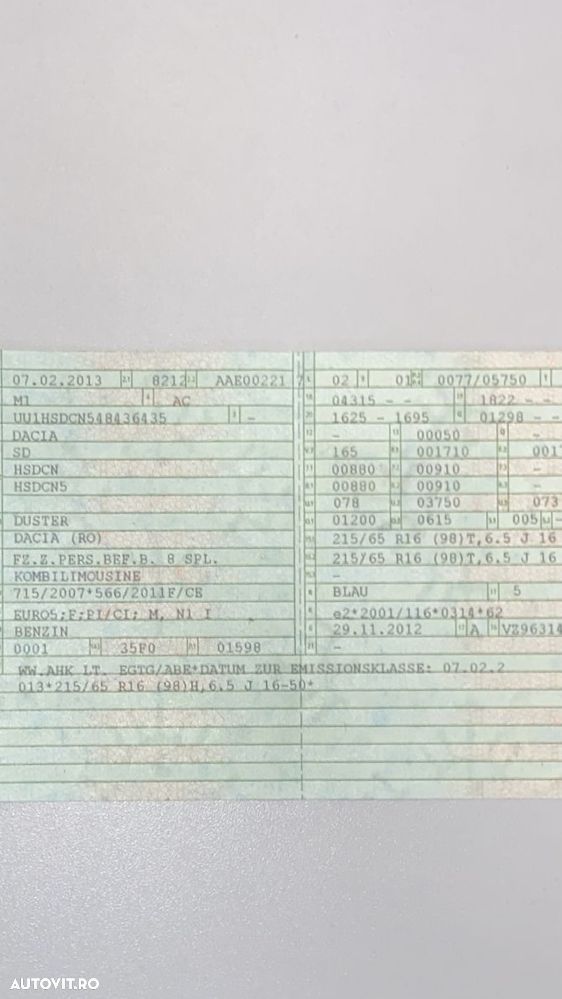 07.02.2013 8212 AAE00221 7 02 01 0077/05750
M1 AC 04315 - - 1822 - -
UU1HSDCN548436435 - 1625 - 1695 01298 - -
DACIA - 00050 -
SD 165 001710 001
HSDCN 00880 00910 -
HSDCN5 00880 00910 -
078 03750 073
DUSTER 01200 0615 005 -
DACIA (RO) 215/65 R16 (98)T,6.5 J 16
FZ.Z.PERS.BEF.B. 8 SPL. 215/65 R16 (98)T,6.5 J 16
KOMBILIMOUSINE -
715/2007*566/2011F/CE BLAU 5
EURO5;F;PI/CI; M, N1 I e2*2001/116*0314*62
BENZIN 29.11.2012 A VZ96314
0001 35F0 01598 -
WW.AHK LT. EGTG/ABE*DATUM ZUR EMISSIONSKLASSE: 07.02.2
013*215/65 R16 (98)H,6.5 J 16-50*
AUTOVIT.RO